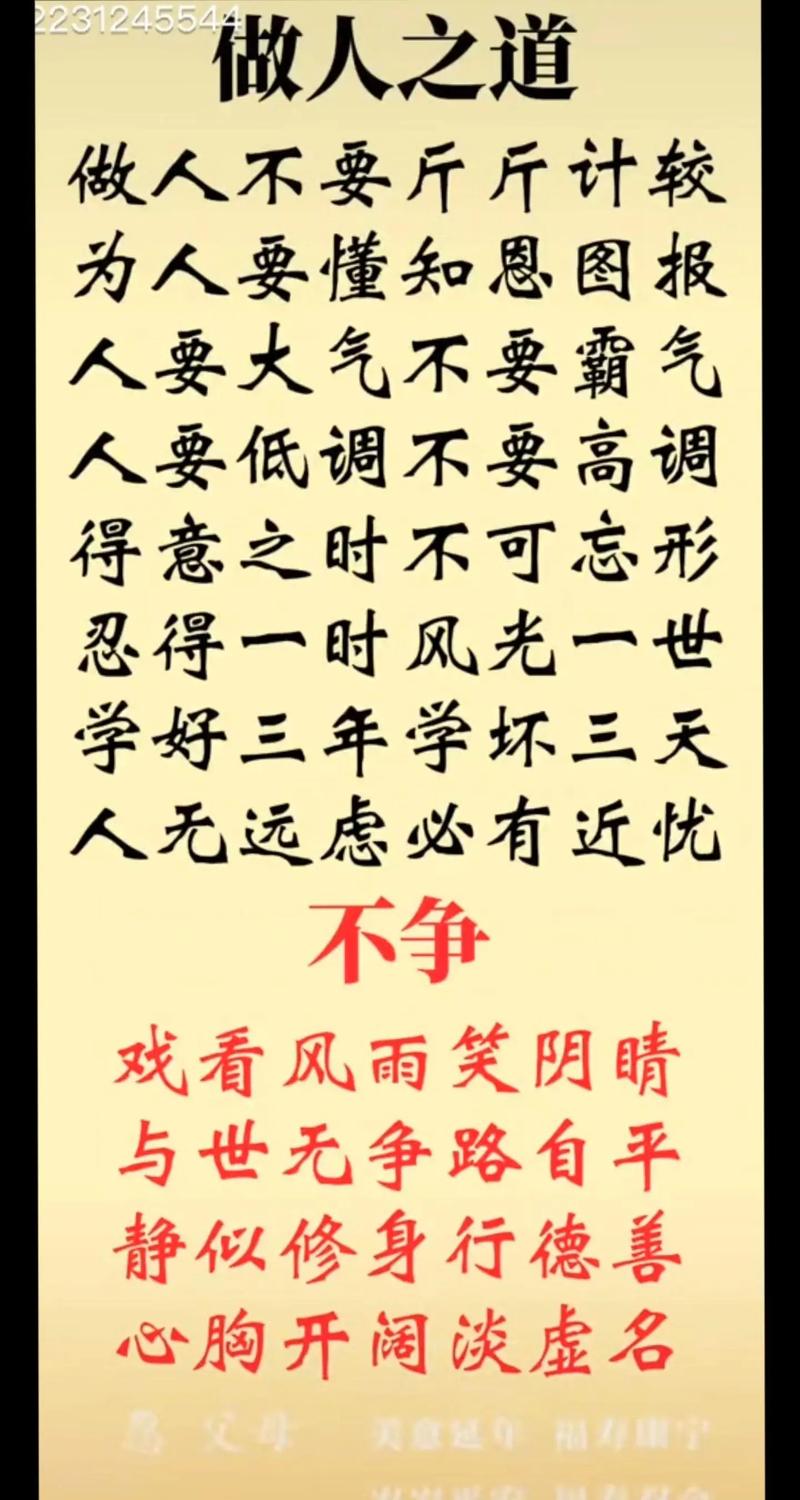 2231245544
做人之道
做人不要斤斤计较
为人要懂知恩图报
人要大气不要霸气
人要低调不要高调
得意之时不可忘形
忍得一时风光一世
学好三年学坏三天
人无远虑必有近忧
不争
戏看风雨笑阴晴
与世无争路自平
静似修身行德善
心胸开阔淡虚名
父母 美意延年 福寿康宁